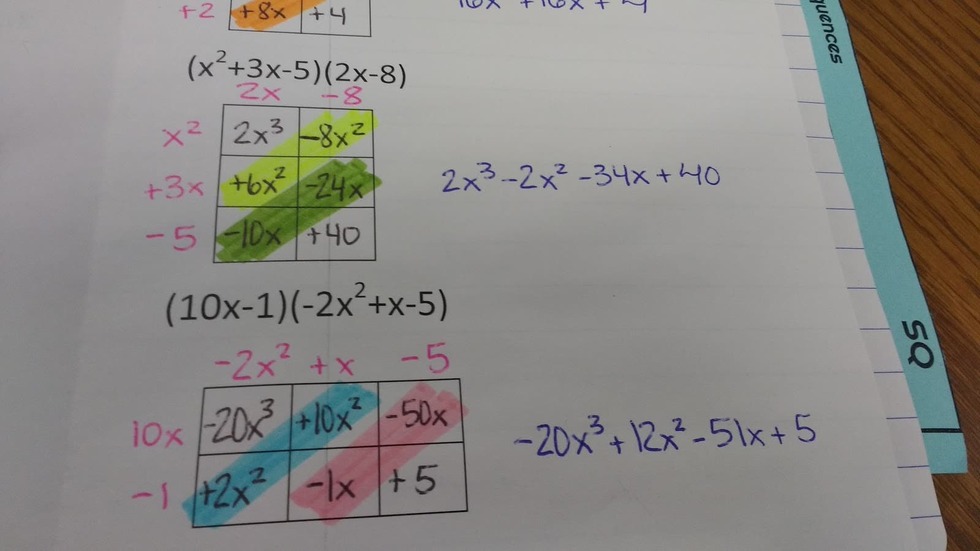 +2 +8x +4
16x² +16x + 4
(x²+3x-5)(2x-8)
2x -8
x² 2x³ -8x²
+3x +6x² -24x
-5 -10x +40
2x³ -2x² -34x + 40
(10x-1)(-2x²+x-5)
-2x² + x -5
10x -20x³ +10x² -50x
-1 +2x² -1x +5
-20x³ + 12x² - 51x + 5
quences
SQ